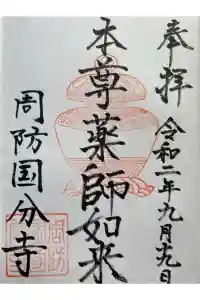 奉拝
令和二年九月九日
本尊薬師如来
周防国分寺